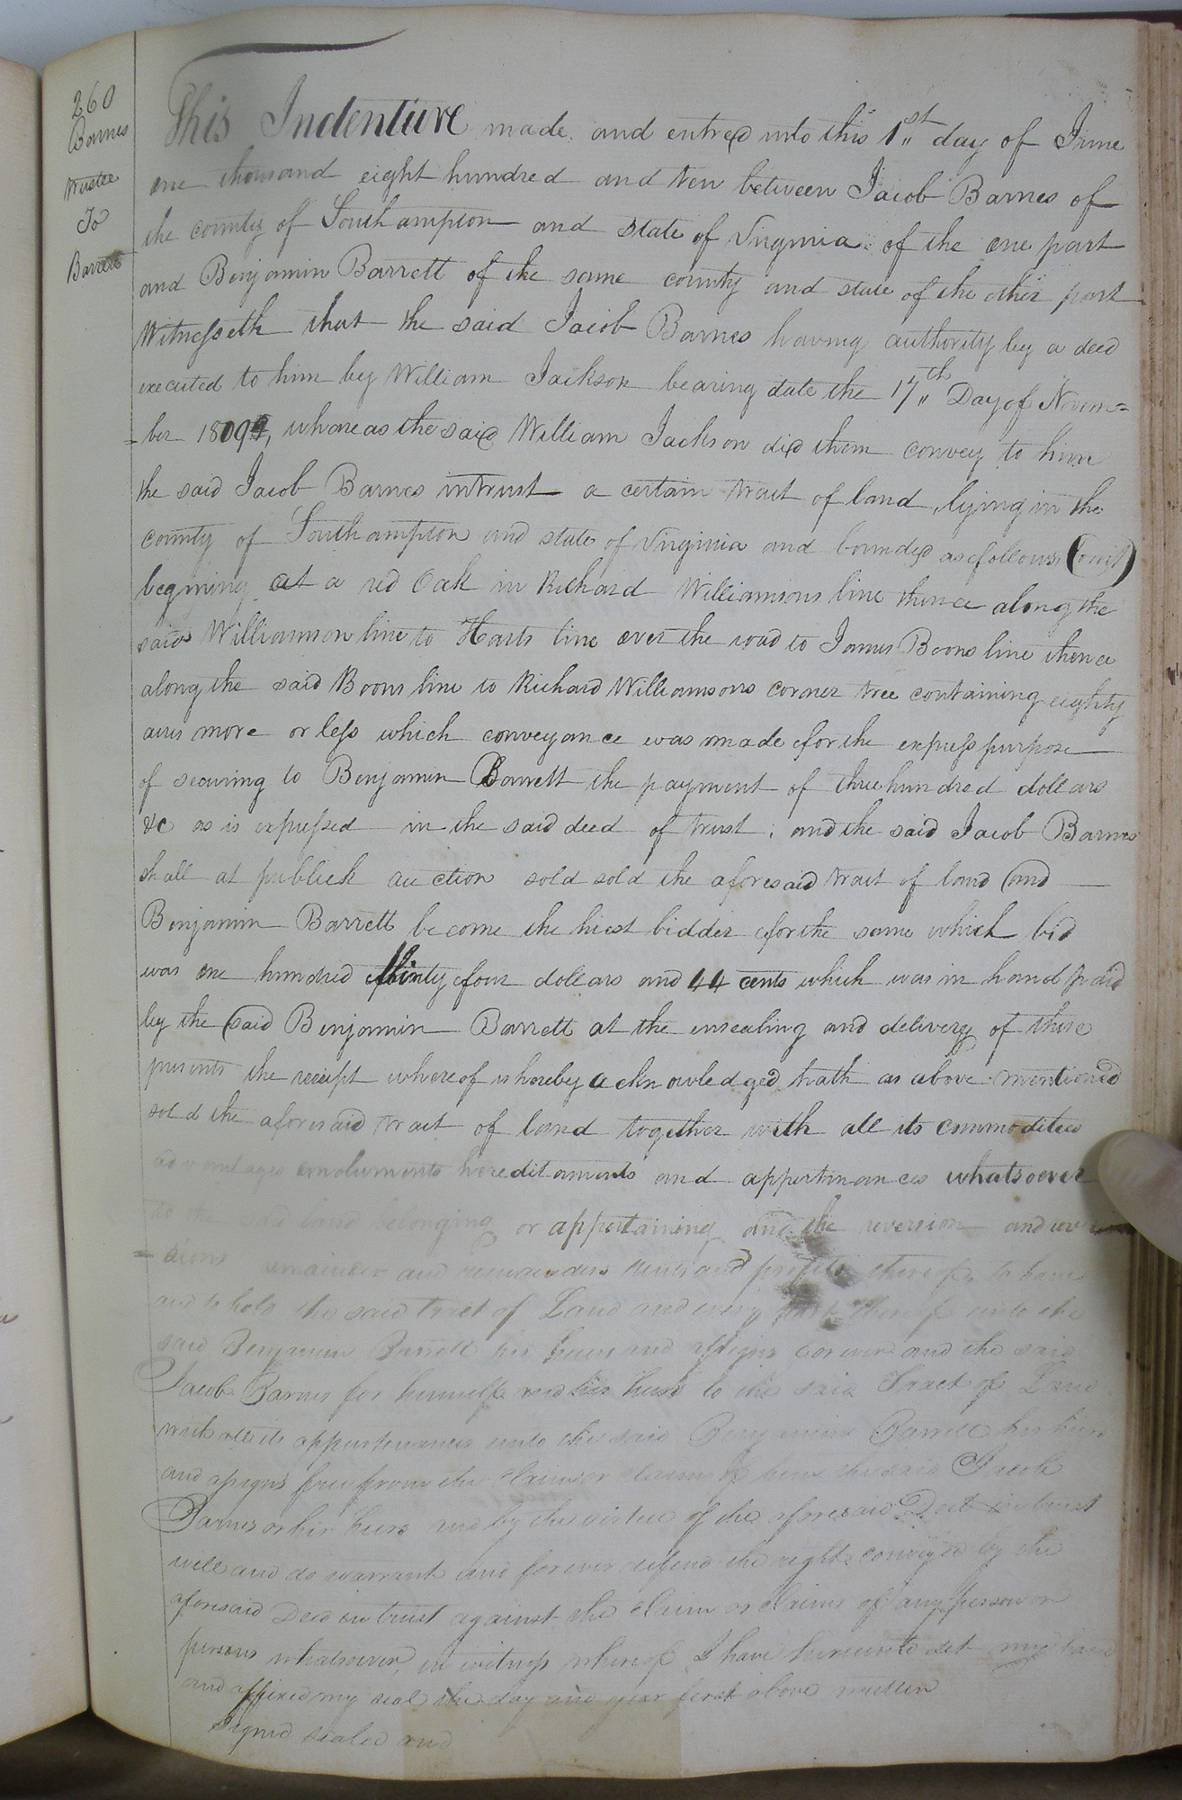 260
Barnes
trustee
To
Barrett
This Indenture made and entred into this 1st day of June
one thousand eight hundred and ten between Jacob Barnes of
the county of Southampton and state of Virginia of the one part
and Benjamin Barrett of the same county and state of the other part
Witnesseth that the said Jacob Barnes having authority by a deed
executed to him by William Jackson bearing date the 17th Day of Novem=
=ber 1809, whareas the said William Jackson did them convey to him
the said Jacob Barnes intrust a certain tract of land, lying in the
county of Southampton and state of Virginia and bounded as follows (towit)
begining at a red Oak in Richard Williamsons line thence along the
said Williamson line to Harts line over the road to James Boons line thence
along the said Boons line to Richard Williamsons corner tree containing eighty
acres more or less which conveyance was made for the express purpose
of securing to Benjamin Barrett the payment of three hundred dollars
&c as is expressed in the said deed of trust; and the said Jacob Barnes
shall at publick auction sold sold the aforesaid tract of land and
Benjamin Barrett become the hiest bidder for the same which bid
was one hundred thirty four dollars and 44 cents which was in hand paid
by the said Benjamin Barrett at the ensealing and delivery of these
presents the receipt whereof is hereby acknowledged hath as above mentioned
sold the aforesaid tract of land together with all its commodities
advantages emoluments hereditaments and appertinances whatsoever
to the said land belonging or appertaining and the reversion and rever
=sions remainder and remainders rents and profits thereof, to have
and to hold the said tract of Land and every part thereof unto the
said Benjamin Barrett his heirs and assigns forever and the said
Jacob Barnes for himself and his heirs to the said Tract of Land
with all its appurtenances unto the said Benjamin Barrett his heirs
and assigns free from the claim or claims of him the said Jacob
Barnes or his heirs and by the virtue of the aforesaid Deed in trust
will and do warrant and forever defend the right conveyed by the
aforesaid Deed in trust against the claim or claims of any person or
persons whatsoever, in witness whereof I have hereunto set my hand
and affixed my seal the day and year first above written
Signed sealed and